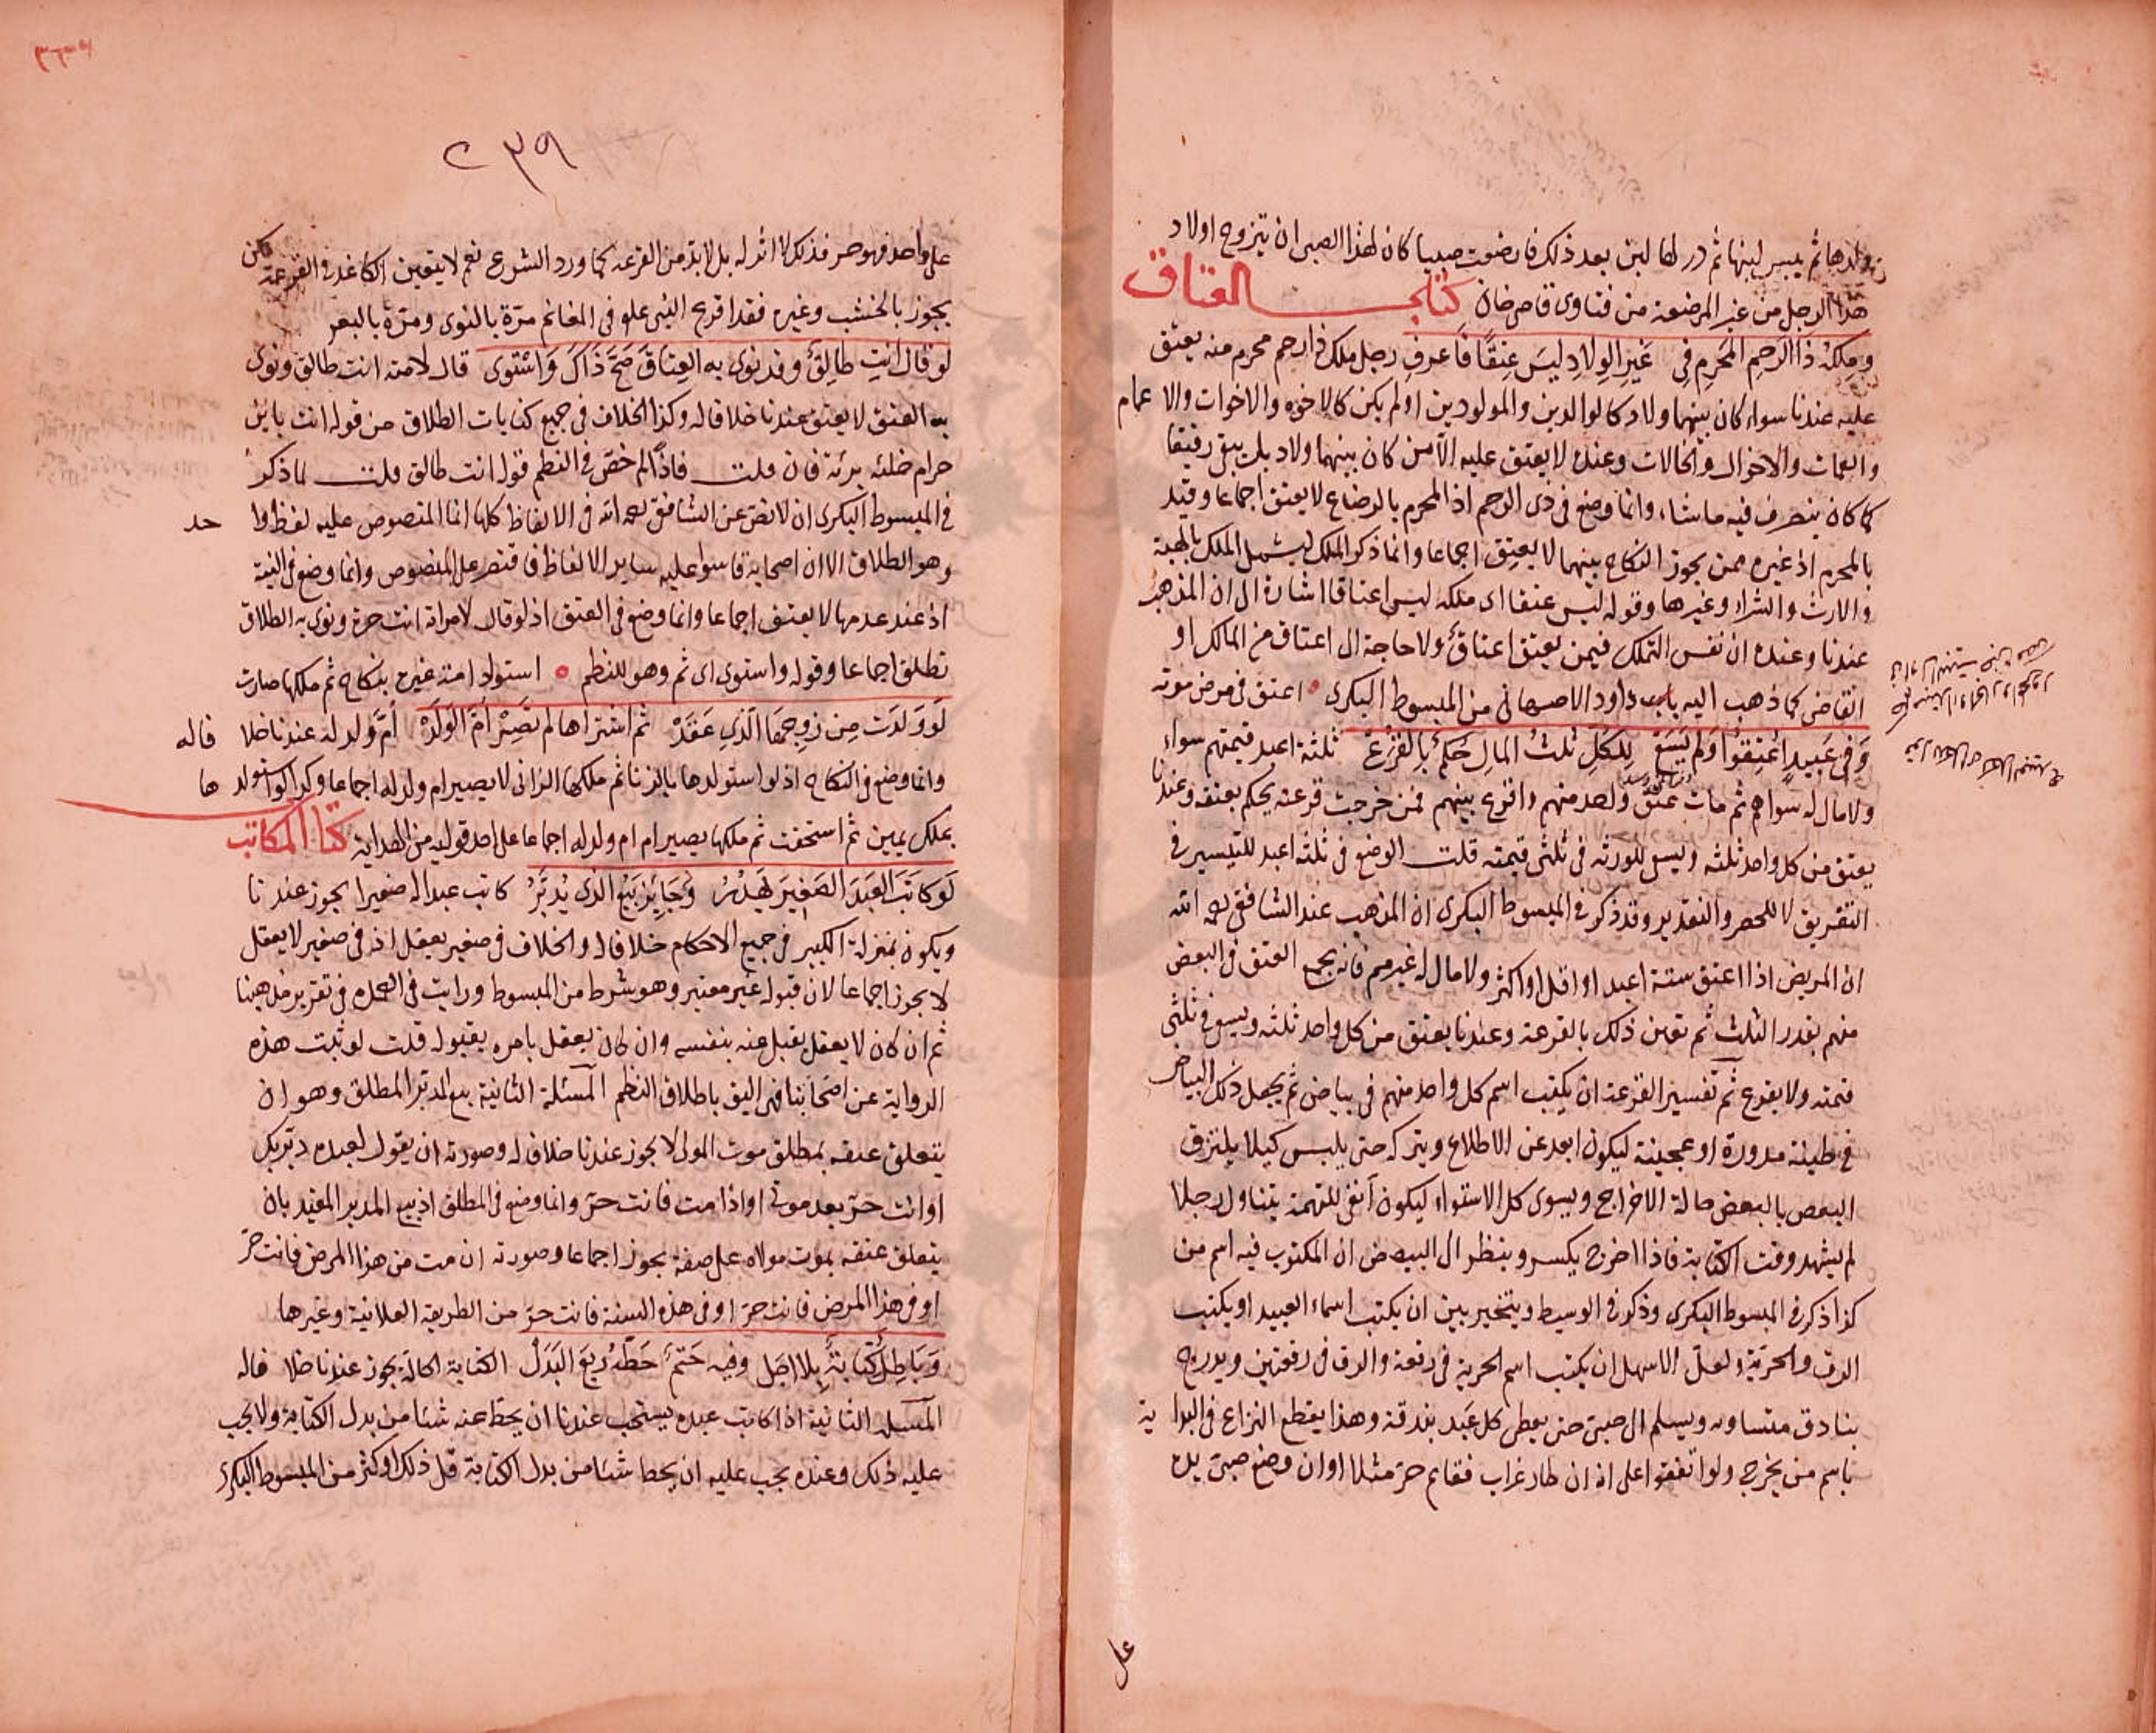 ولدها ثم يبس لبنها ثم در لها لبن بعد ذلك فارضعت صبيا كان لهذا الصبي ان يتزوج اولاد
هذا الرجل من غير المرضعة من فتاوى قاضي خان كتاب العتاق
وملكه ذا الرحم المحرم في غير الولاد ليس عتقا فاعرف رجل ملك ذا رحم محرم منه يعتق
عليه عندنا سواء كان بينهما ولاد كالوالدين والمولودين او لم يكن كالاخوه والاخوات والاعمام
والعمات والاخوال والخالات وعنده لا يعتق عليه الا من كان بينهما ولاد بل يبقى رقيقا
كما كان يتصرف فيه ما شاء وانما وضع في ذي الرحم اذ المحرم بالرضاع لا يعتق اجماعا وقيد
بالمحرم اذ غيره ممن يجوز النكاح بينهما لا يعتق اجماعا وانما ذكر الملك ليشمل الملك بالهبة
والارث والشراء وغيرها وقوله ليس عتقا اي ملكه ليس اعتاقا اشارة الى ان المذهب
عندنا وعنده ان نفس التملك فيمن يعتق اعتاق ولا حاجة الى اعتاق من المالك او
القاضي كما ذهب اليه داود الاصبهاني من المبسوط البكري اعتق في مرض موته
وفي عبيد اعتقوا ولم يسع للكل ثلث المال حكم بالقرع ثلثة اعبد قيمتهم سواء
ولا مال له سواهم ثم مات عتق واحد منهم واقرع بينهم فمن خرجت قرعته يحكم بعتقه وعندنا
يعتق من كل واحد ثلثه ويسعى للورثه في ثلثي قيمته قلت الوضع في ثلثه اعبد للتيسير في
التفريق لا للحصر والتقدير وقد ذكر في المبسوط البكري ان المذهب عند الشافعي رحمه الله
ان المريض اذا اعتق ستة اعبد او اقل او اكثر ولا مال له غيرهم فانه يجمع العتق في البعض
منهم بقدر الثلث ثم تعين ذلك بالقرعة وعندنا يعتق من كل واحد ثلثه ويسعى في ثلثي
قيمته ولا يقرع ثم تفسير القرعة ان يكتب اسم كل واحد منهم في بياض ثم يجعل ذلك البياض
في طينة مدورة او عجينة ليكون ابعد عن الاطلاع ويتركه حتى ييبس كيلا يلتزق
البعض بالبعض حالة الاخراج ويسوى كل الاستواء ليكون انفى للتهمة يتناول رجلا
لم يشهد وقت الكتابة فاذا اخرج يكسر وينظر الى البياض ان المكتوب فيه اسم من
كذا ذكر في المبسوط البكري وذكر في الوسيط ويتخير بين ان يكتب اسماء العبيد او يكتب
الرق والحرية ولعل الاسهل ان يكتب اسم الحرية في رقعة والرق في رقعتين ويدرج
بنادق متساويه ويسلم الى صبي حتى يعطي كل عبد بندقة وهذا يقطع النزاع في البداية
باسم من يخرج ولو اتفقوا على اذ ان طار غراب فقائم حر مثلا او ان وضع صبي يده
على
٢٣٩
على واحد فهو حر فذلك لا اثر له بل لا بد من القرعه كما ورد الشرع نعم لا يتعين الكاغد في القرعة لكن
يجوز بالخشب وغيره فقد اقرع النبي علم في المغانم مرة بالنوى ومرة بالبعر
لو قال انت طالق وقد نوى به العتاق صح ذاك واستوى قال لامته انت طالق ونوى
به العتق لا يعتق عندنا خلافا له وكذا الخلاف في جميع كنايات الطلاق من قوله انت باين
حرام خليه برئه فان قلت فاذا لم خص في النظم قوله انت طالق قلت لما ذكر
في المبسوط البكري ان لا نص عن الشافعي رحمه الله في الالفاظ كلها انما المنصوص عليه لفظ واحد
وهو الطلاق الا ان اصحابه قاسوا عليه ساير الالفاظ فاقتصر على المنصوص وانما وضع في النية
اذ عند عدمها لا يعتق اجماعا وانما وضع في العتق اذ لو قال لامراته انت حرة ونوى به الطلاق
تطلق اجماعا وقوله واستوى اي تم وهو للنظم استولد امة غيره بنكاح ثم ملكها صارت
لو ولدت من زوجها الذي عقد ثم اشتراها لم تصر ام الولد ام ولد له عندنا خلافا له
وانما وضع في النكاح اذ لو استولدها بالزنا ثم ملكها الزاني لا يصير ام ولد له اجماعا وكذا لو استولدها
بملك يمين ثم استحقت ثم ملكها يصير ام ولد له اجماعا على احد قوليه من الهداية كتاب المكاتب
لو كاتب العبد الصغير يهدر وجايز بيع الذي يدبر كاتب عبدا له صغيرا يجوز عندنا
ويكون بمنزلة الكبير في جميع الاحكام خلافا له والخلاف في صغير يعقل اذ في صغير لا يعقل
لا يجوز اجماعا لان قبوله غير معتبر وهو شرط من المبسوط ورايت في العمدة في تقرير مذهبنا
ثم ان كان لا يعقل يقبل عنه بنفسه وان كان يعقل يامره بقبوله قلت لو ثبت هذه
الرواية عن اصحابنا فهي اليق باطلاق النظم المسئلة الثانية بيع المدبر المطلق وهو ان
يتعلق عتقه بمطلق موت المولى لا يجوز عندنا خلافا له وصورته ان يقول لعبده دبرتك
او انت حر بعد موتي او اذا مت فانت حر وانما وضع في المطلق اذ بيع المدبر المقيد بان
يتعلق عتقه بموت مولاه على صفة يجوز اجماعا وصورته ان مت من هذا المرض فانت حر
او في هذا المرض فانت حر او في هذه السنة فانت حر من الطريقة العلائية وغيرها
وباطل كتابة بلا اجل وفيه حتم حطه ربع البدل الكتابة الحالة يجوز عندنا خلافا له
المسئلة الثانية اذا كاتب عبده يستحب عندنا ان يحط عنه شئا من بدل الكتابة ولا يجب
عليه ذلك وعنده يجب عليه ان يحط شئا من بدل الكتابة قل ذلك او كثر من المبسوط البكري